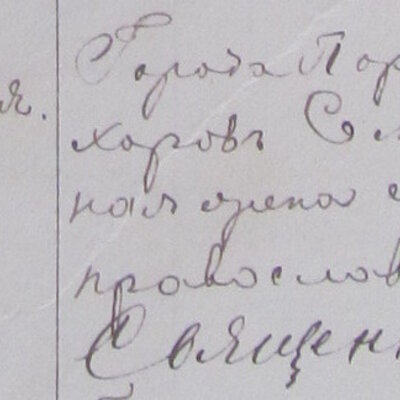 я. Города Пор
ховъ С
ная жена
православ
Священ